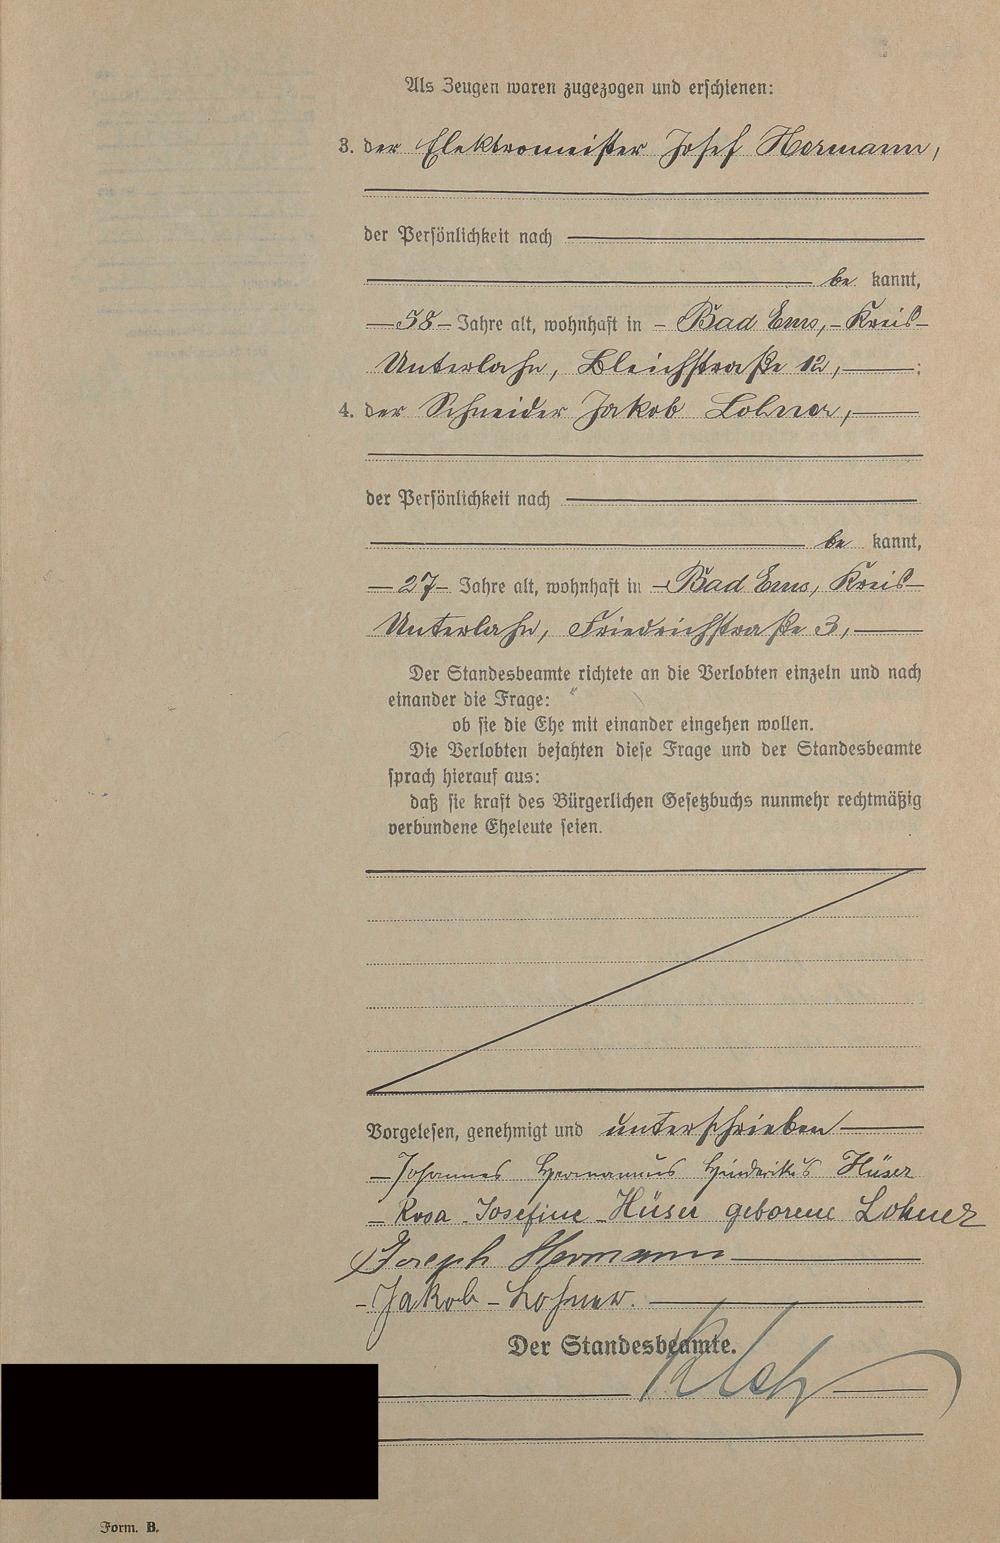 Als Zeugen waren zugezogen und erschienen:
3. der Elektromeister Josef Hermann,
der Persönlichkeit nach
be kannt,
58 Jahre alt, wohnhaft in Bad Ems, Kreis
Unterlahn, Bleichstraße 12, ;
4. der Schneider Jakob Lohner,
der Persönlichkeit nach
be kannt,
27 Jahre alt, wohnhaft in Bad Ems, Kreis
Unterlahn, Friedrichstraße 3,
Der Standesbeamte richtete an die Verlobten einzeln und nach
einander die Frage:
ob sie die Ehe mit einander eingehen wollen.
Die Verlobten bejahten diese Frage und der Standesbeamte
sprach hierauf aus:
daß sie kraft des Bürgerlichen Gesetzbuchs nunmehr rechtmäßig
verbundene Eheleute seien.
Vorgelesen, genehmigt und unterschrieben
Johannes Hermannus Hinderikus Hüser
Rosa Josefine Hüser geborene Lohner
Joseph Hermann
Jakob Lohner.
Der Standesbeamte.
Form. B.